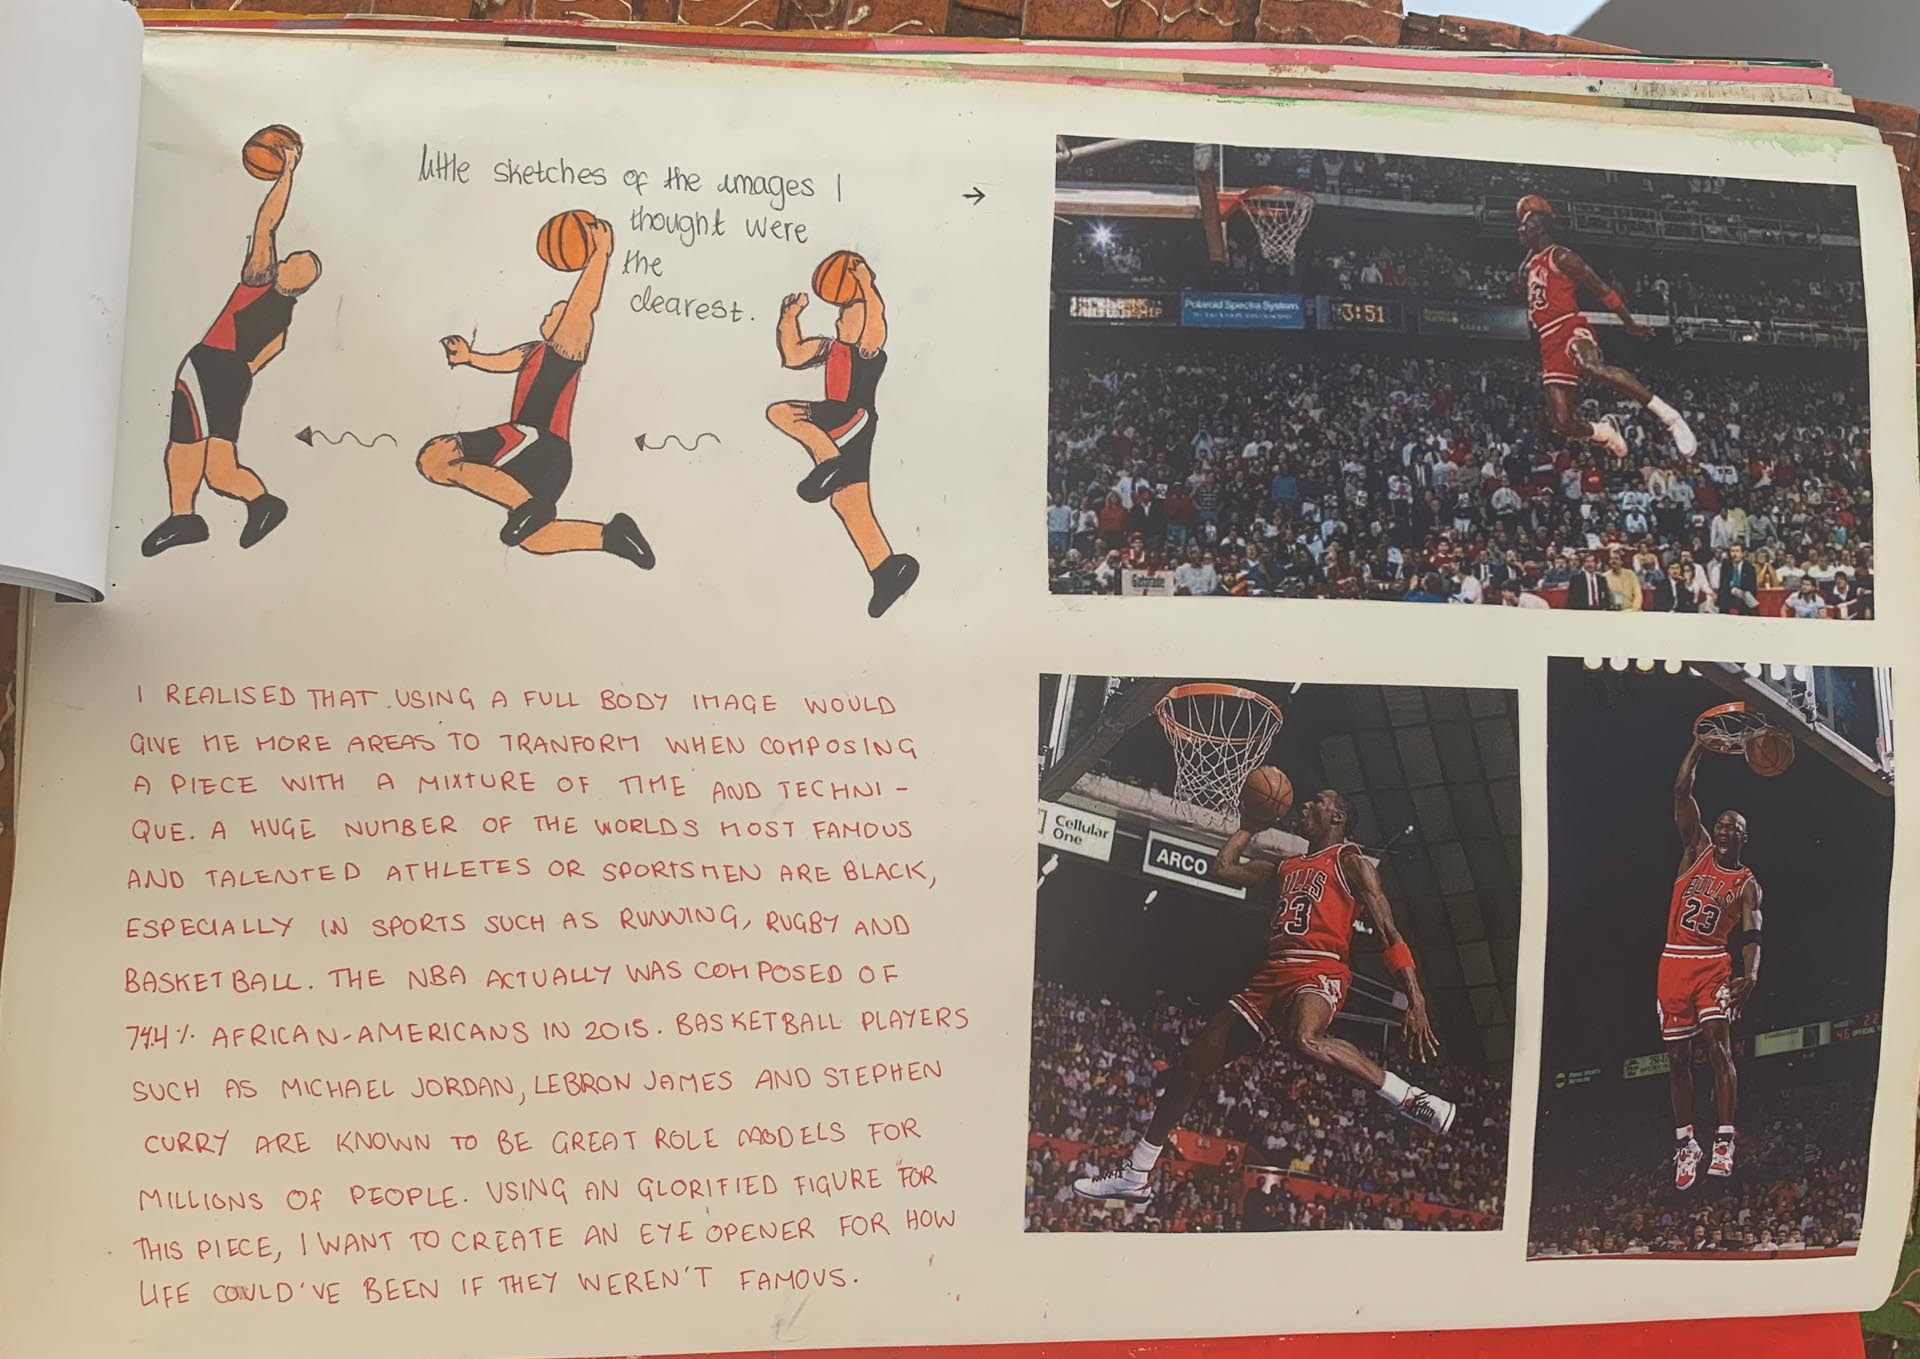 little sketches of the images I
thought were
the
clearest.
→
I REALISED THAT USING A FULL BODY IMAGE WOULD
GIVE ME MORE AREAS TO TRANFORM WHEN COMPOSING
A PIECE WITH A MIXTURE OF TIME AND TECHNI-
QUE. A HUGE NUMBER OF THE WORLDS MOST FAMOUS
AND TALENTED ATHLETES OR SPORTSMEN ARE BLACK,
ESPECIALLY IN SPORTS SUCH AS RUNNING, RUGBY AND
BASKETBALL. THE NBA ACTUALLY WAS COMPOSED OF
74.4% AFRICAN-AMERICANS IN 2015. BASKETBALL PLAYERS
SUCH AS MICHAEL JORDAN, LEBRON JAMES AND STEPHEN
CURRY ARE KNOWN TO BE GREAT ROLE MODELS FOR
MILLIONS OF PEOPLE. USING AN GLORIFIED FIGURE FOR
THIS PIECE, I WANT TO CREATE AN EYE OPENER FOR HOW
LIFE COULD'VE BEEN IF THEY WEREN'T FAMOUS.
Polaroid Spectra System
3:51
Gatorade
Cellular
One
ARCO
23
BULLS
23